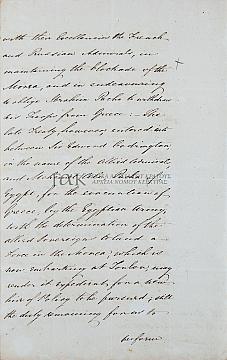 with their Excellencies the French
and Russian Admirals, in
maintaining the blockade of the
Morea, and in endeavouring
to oblige Ibrahim Pacha to withdraw
his Troops from Greece: – The
late Treaty however entered into
between Sir Edward Codrington
in the name of the Allied Admirals,
and Pacha of
Egypt, for the evacuation of
Greece, by the Egyptian Army,
with the determination of the
Allied Sovereigns to land a
Force in the Morea; which is
now embarking at Toulon; may
render it expedient, for a new
line of Policy to be pursued; still
the duty remaining for us to
perform
ΓΑΚ
ΑΡΧΕΙΑ ΝΟΜΟΥ ΚΕΡΚΥΡΑΣ